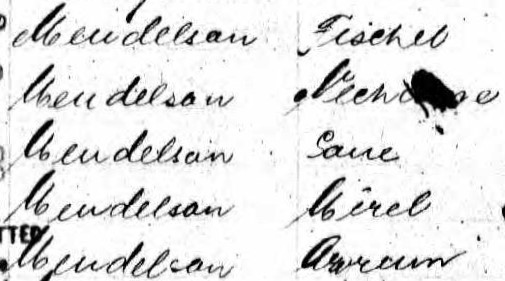 Mendelson Fischel
Mendelson
Mendelson
Mendelson Mirel
TTED
Mendelson Avrum